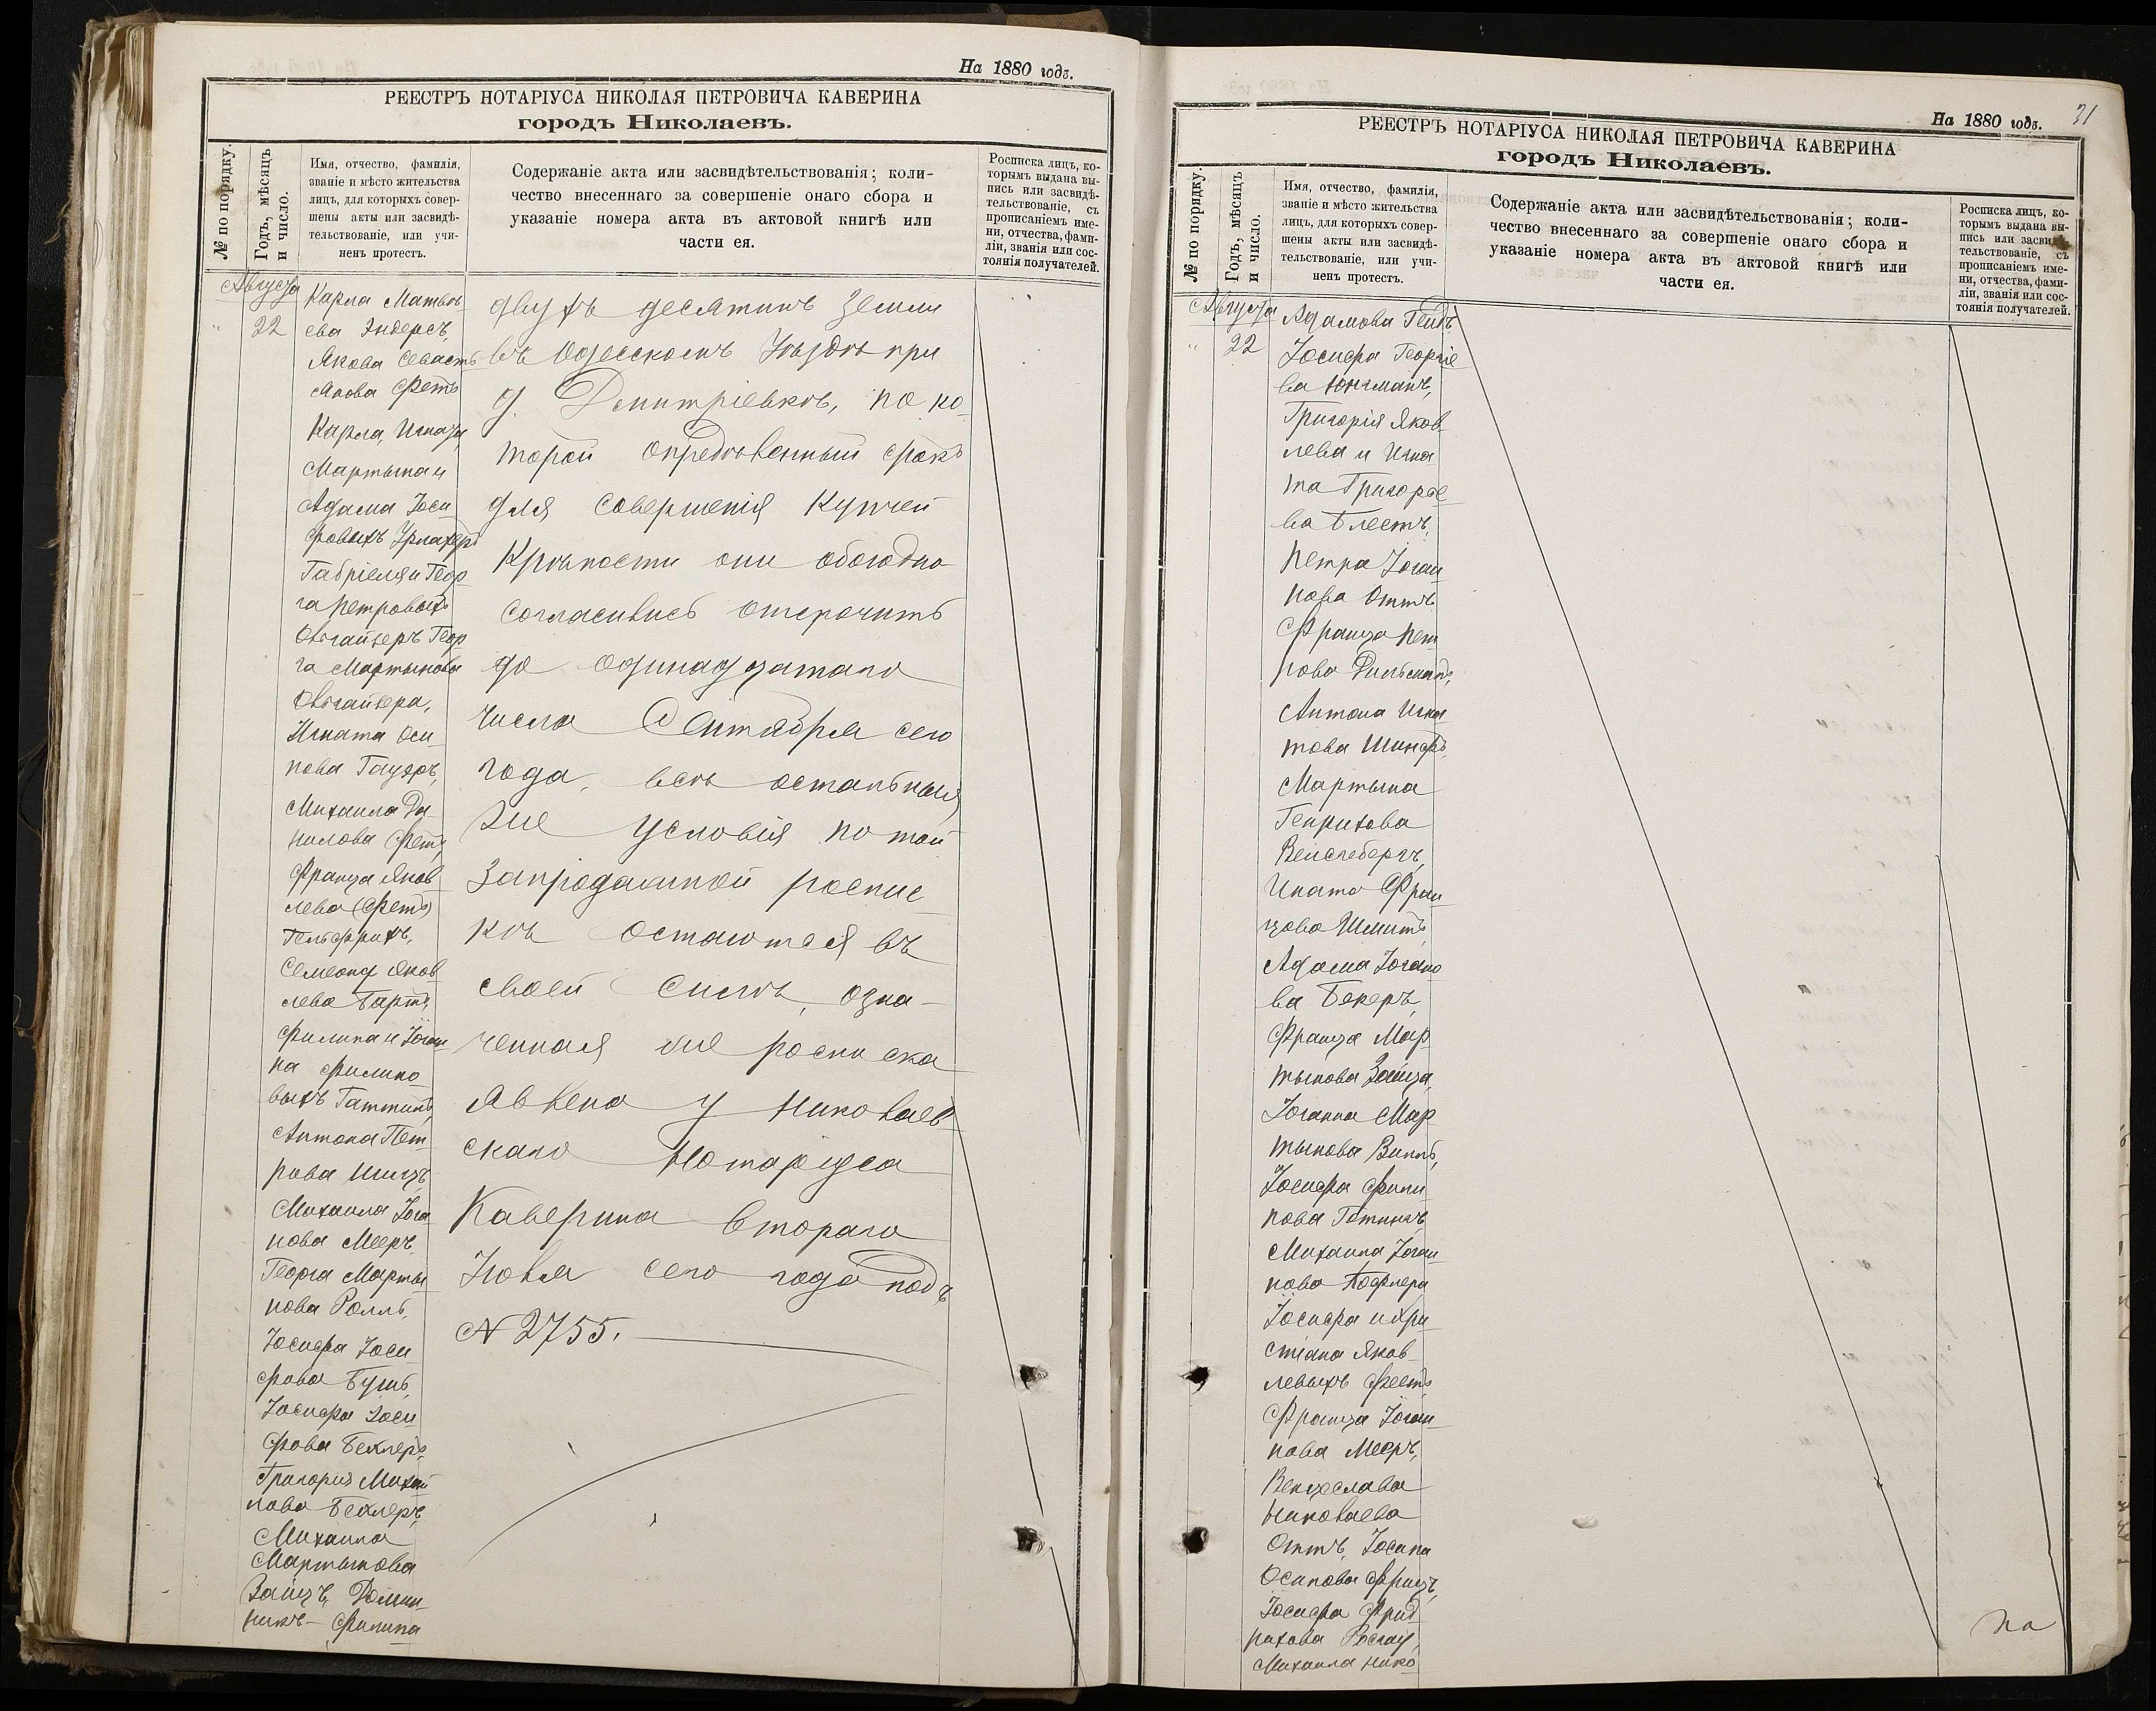 На 1880 годъ.
РЕЕСТРЪ НОТАРІУСА НИКОЛАЯ ПЕТРОВИЧА КАВЕРИНА
городъ Николаевъ.
№ по порядку.
Годъ, мѣсяцъ
и число.
Имя, отчество, фамилія,
званіе и мѣсто жительства
лицъ, для которыхъ совер-
шены акты или засвидѣ-
тельствованіе, или учи-
ненъ протестъ.
Содержаніе акта или засвидѣтельствованія; коли-
чество внесеннаго за совершеніе онаго сбора и
указаніе номера акта въ актовой книгѣ или
части ея.
Росписка лицъ, ко-
торымъ выдана вы-
пись или засвидѣ-
тельствованіе, съ
прописаніемъ име-
ни, отчества, фами-
ліи, званія или сос-
тоянія получателей.
Августа
" 22
Карла Матвѣ
ева Эндерсъ,
Якова Севасть
янова Фетъ
Карла, Игната,
Мартына и
Адама Іоси
фовыхъ
Габріеля и Геор
га Петровыхъ
Геор
га Мартынова
Игната Оси
пова Гауэръ,
Михаила Да
нилова Фетъ,
Франца Яков
лева (Фетъ)
Гельфрихъ,
Семеона Яков
лева Бартъ,
Филипа и Іоган
на Филипо
выхъ Гаттингъ,
Антона Пет
рова
Михаила Іога
нова Мееръ,
Георга Марты
нова Ролль,
Іосифа Іоси
фова Бушъ,
Іосифа Іоси
фова Беклеръ,
Григорія Михай
лова Беклеръ,
Михаила
Мартынова
Зайцъ, Доми
никъ- Филипа
двухъ десятинъ земли
въ Одесскомъ Уѣздѣ при
д. Дмитріевкѣ, по ко-
торой опредѣленный срокъ
для совершенія Купчей
Крѣпости они обоюдно
согласились отсрочить
до одинадцатаго
числа Сентября сего
года, всѣ остальныя
же условія по той
запродажной роспис
кѣ остаются въ
своей силѣ, озна-
ченная же росписка
явлена у Николаев
скаго Нотаріуса
Каверина втораго
Іюня сего года подъ
N 2755.
На 1880 годъ.
31
РЕЕСТРЪ НОТАРІУСА НИКОЛАЯ ПЕТРОВИЧА КАВЕРИНА
городъ Николаевъ.
№ по порядку.
Годъ, мѣсяцъ
и число.
Имя, отчество, фамилія,
званіе и мѣсто жительства
лицъ, для которыхъ совер-
шены акты или засвидѣ-
тельствованіе, или учи-
ненъ протестъ.
Содержаніе акта или засвидѣтельствованія; коли-
чество внесеннаго за совершеніе онаго сбора и
указаніе номера акта въ актовой книгѣ или
части ея.
Росписка лицъ, ко-
торымъ выдана вы-
пись или засвидѣ-
тельствованіе, съ
прописаніемъ име-
ни, отчества, фами-
ліи, званія или сос-
тоянія получателей.
Августа
" 22
Адамова
Іосифа Георгіе
ва Юнгманъ,
Григорія Яков
лева и Игна
та Григорье
ва
Петра Іоган
нова Оттъ
Франца Пет
рова Дильманъ,
Антона Игна
това
Мартына
Генрихова
Вейсгеберъ,
Игната Фран
цова Шмитъ,
Адама Іогано
ва Бекеръ,
Франца Мар
тынова Зайца,
Іоганна Мар
тынова
Іосифа Фили
пова Гатингъ,
Михаила Іоган
нова
Іосифа и Хри
стіана Яков
левыхъ
Франца Іоган
нова Мееръ,
Венцеслава
Николаева
Оттъ, Іосипа
Осипова Фрицъ,
Іосифа Фрид
рихова
Михаила Нико
на